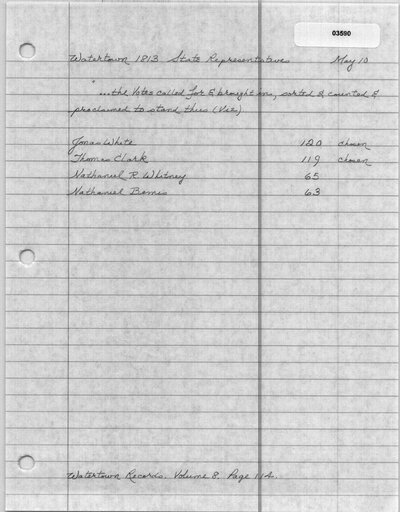 03590
Watertown 1813 State Representatives May 10
"...the Votes called for & brought ins, sorted & counted &
proclaimed to stand thus (Viz)
Jonas White 120 chosen
Thomas Clark 119 chosen
Nathaniel R Whitney 65
Nathaniel Bemis 63
Watertown Records. Volume 8. Page 114.